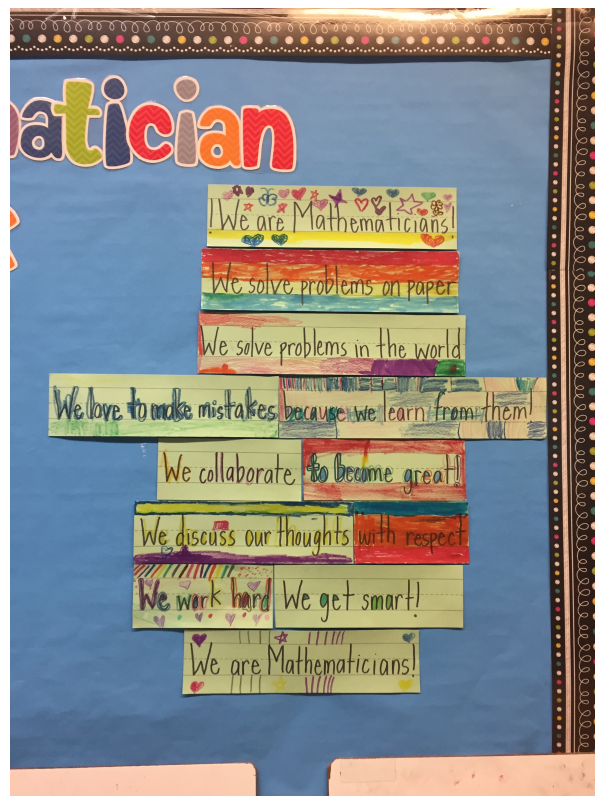 matician
!We are Mathematicians!
We solve problems on paper
We solve problems in the world
We love to make mistakes because we learn from them!
We collaborate to become great!
We discuss our thoughts with respect
We work hard We get smart!
We are Mathematicians!